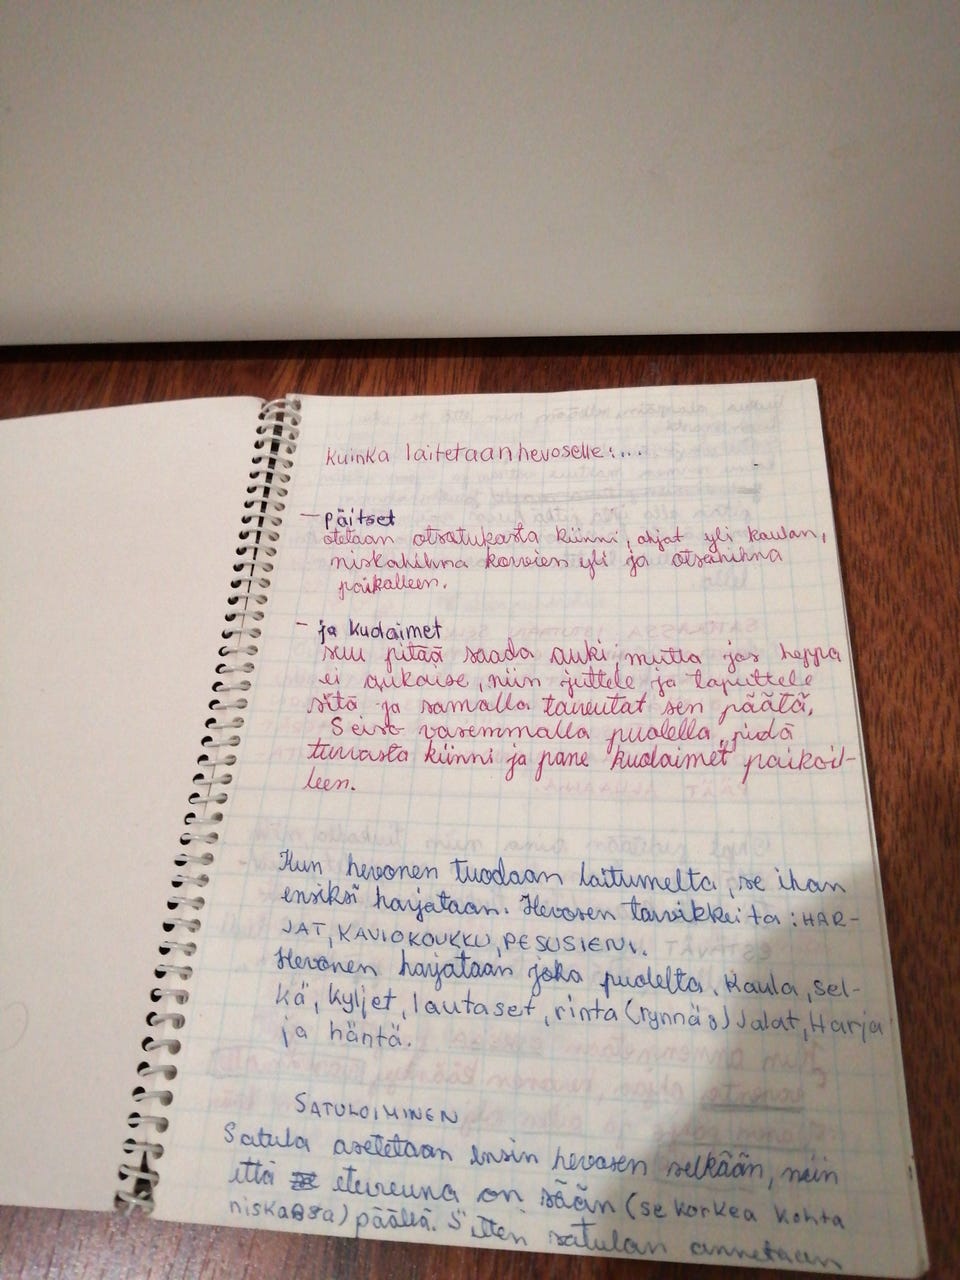 Kuinka laitetaan hevoselle:...
- päitset
otetaan otsatukasta kiinni, ohjat yli kaulan,
niskahihna korvien yli ja otsahihna
paikalleen.
- ja kudaimet
suu pitää saada auki mutta jos heppa
ei aukaise, niin juttele ja taputtele
sitä ja samalla taivutat sen päätä.
Seiso vasemmalla puolella, pidä
turvasta kiinni ja pane kudaimet paikoil-
leen.
Kun hevonen tuodaan laitumelta, se ihan
ensiksi harjataan. Hevosen tarvikkeita: HAR-
JAT, KAVIOKOUKKU, PESUSIENI.
Hevonen harjataan joka puolelta. Kaula, sel-
kä, kyljet, lautaset, rinta (rynnäs) Jalat, Harja
ja häntä.
SATULOIMINEN
Satula asetetaan ensin hevosen selkään, niin
että etureuna on sään (se korkea kohta
niskassa) päällä. Sitten satulan annetaan